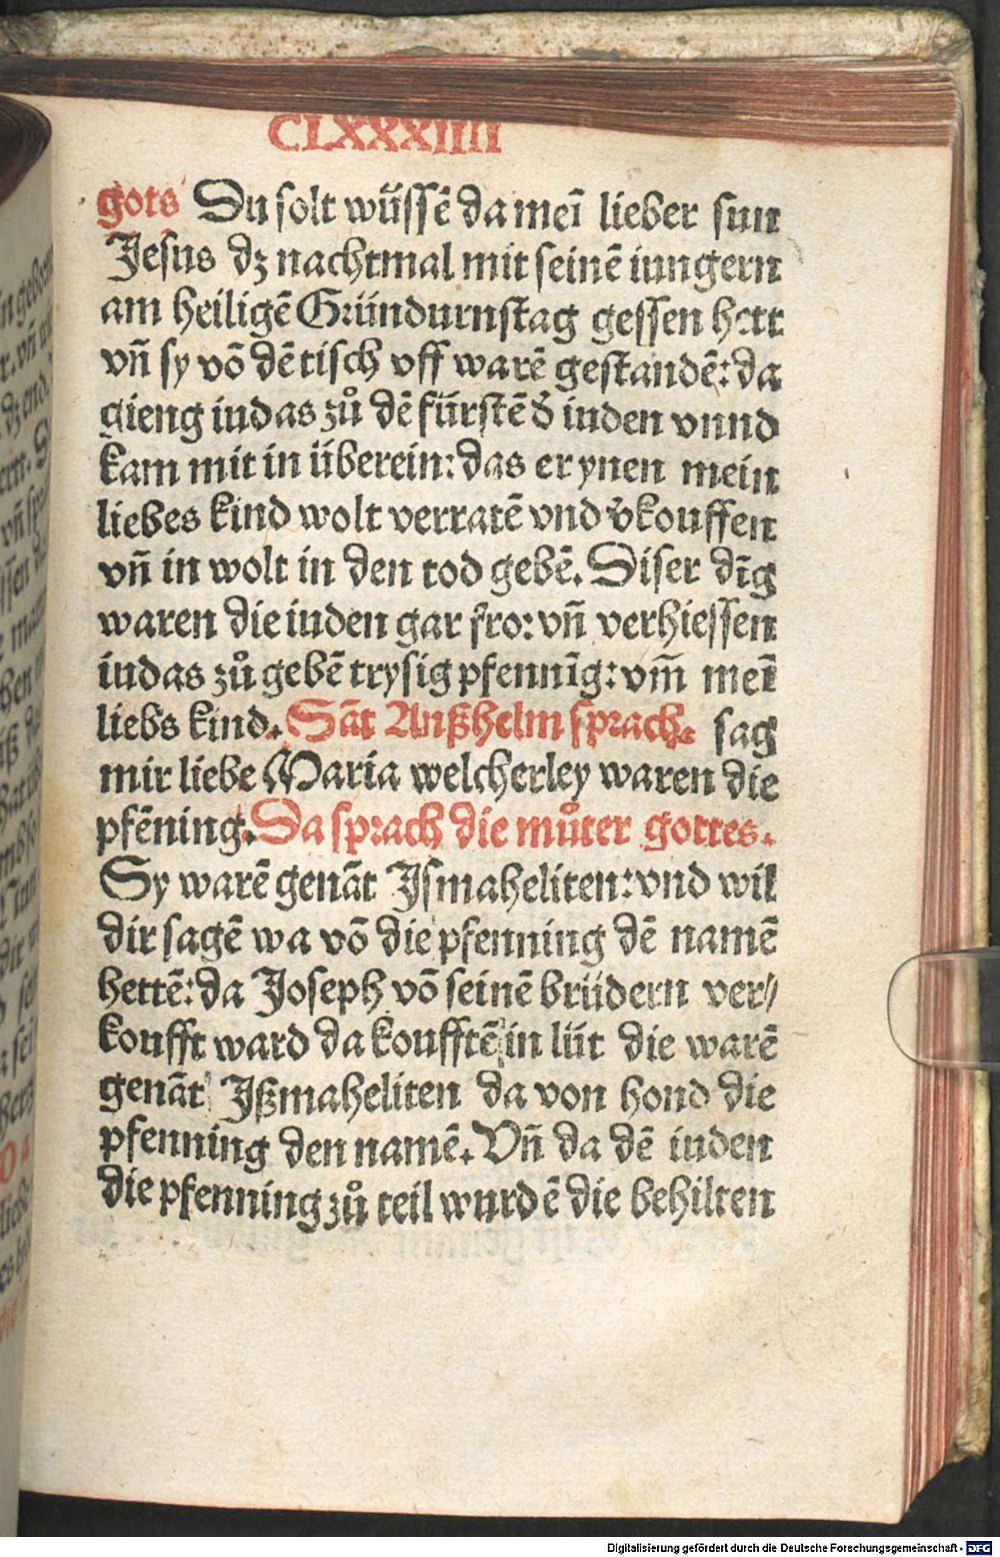 CLXXXIIII
gots Du solt wüssē da meī lieber sun
Jesus dz nachtmal mit seinē iungern
am heiligē Gründurnstag gessen hett
vñ sy vō dē tisch vff warē gestandē: da
gieng iudas zů dē fürstē d̄ iuden vnnd
kam mit in überein: das er ynen mein
liebes kind wolt verratē vnd v̄kouffen
vñ in wolt in den tod gebē. Diser dīg
waren die iuden gar fro: vñ verhiessen
iudas zů gebē trysig pfennīg: vm̄ meī
liebs kind. Sāt Anßhelm sprach. sag
mir liebe Maria welcherley waren die
pfēning. Da sprach die můter gottes.
Sy warē genāt Jsmaheliten: vnd wil
dir sagē wa vō die pfenning dē namē
hettē: da Joseph vō seinē brüdern ver/
koufft ward da koufftē in lüt die warē
genāt Jßmaheliten da von hond die
pfenning den namē. Vñ da dē iuden
die pfenning zů teil wurdē die behilten
Digitalisierung gefördert durch die Deutsche Forschungsgemeinschaft - DFG